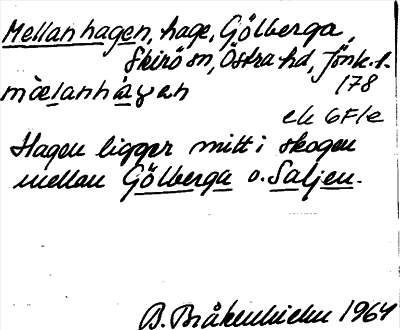 Mellanhagen, hage, Gölberga,
Skirö sn, Östra hd, Jönk. l.
178
mælanhagen
ek 6F1e
Hagen ligger mitt i skogen
mellan Gölberga o. Saljen.
B. Bråkenhielm 1964